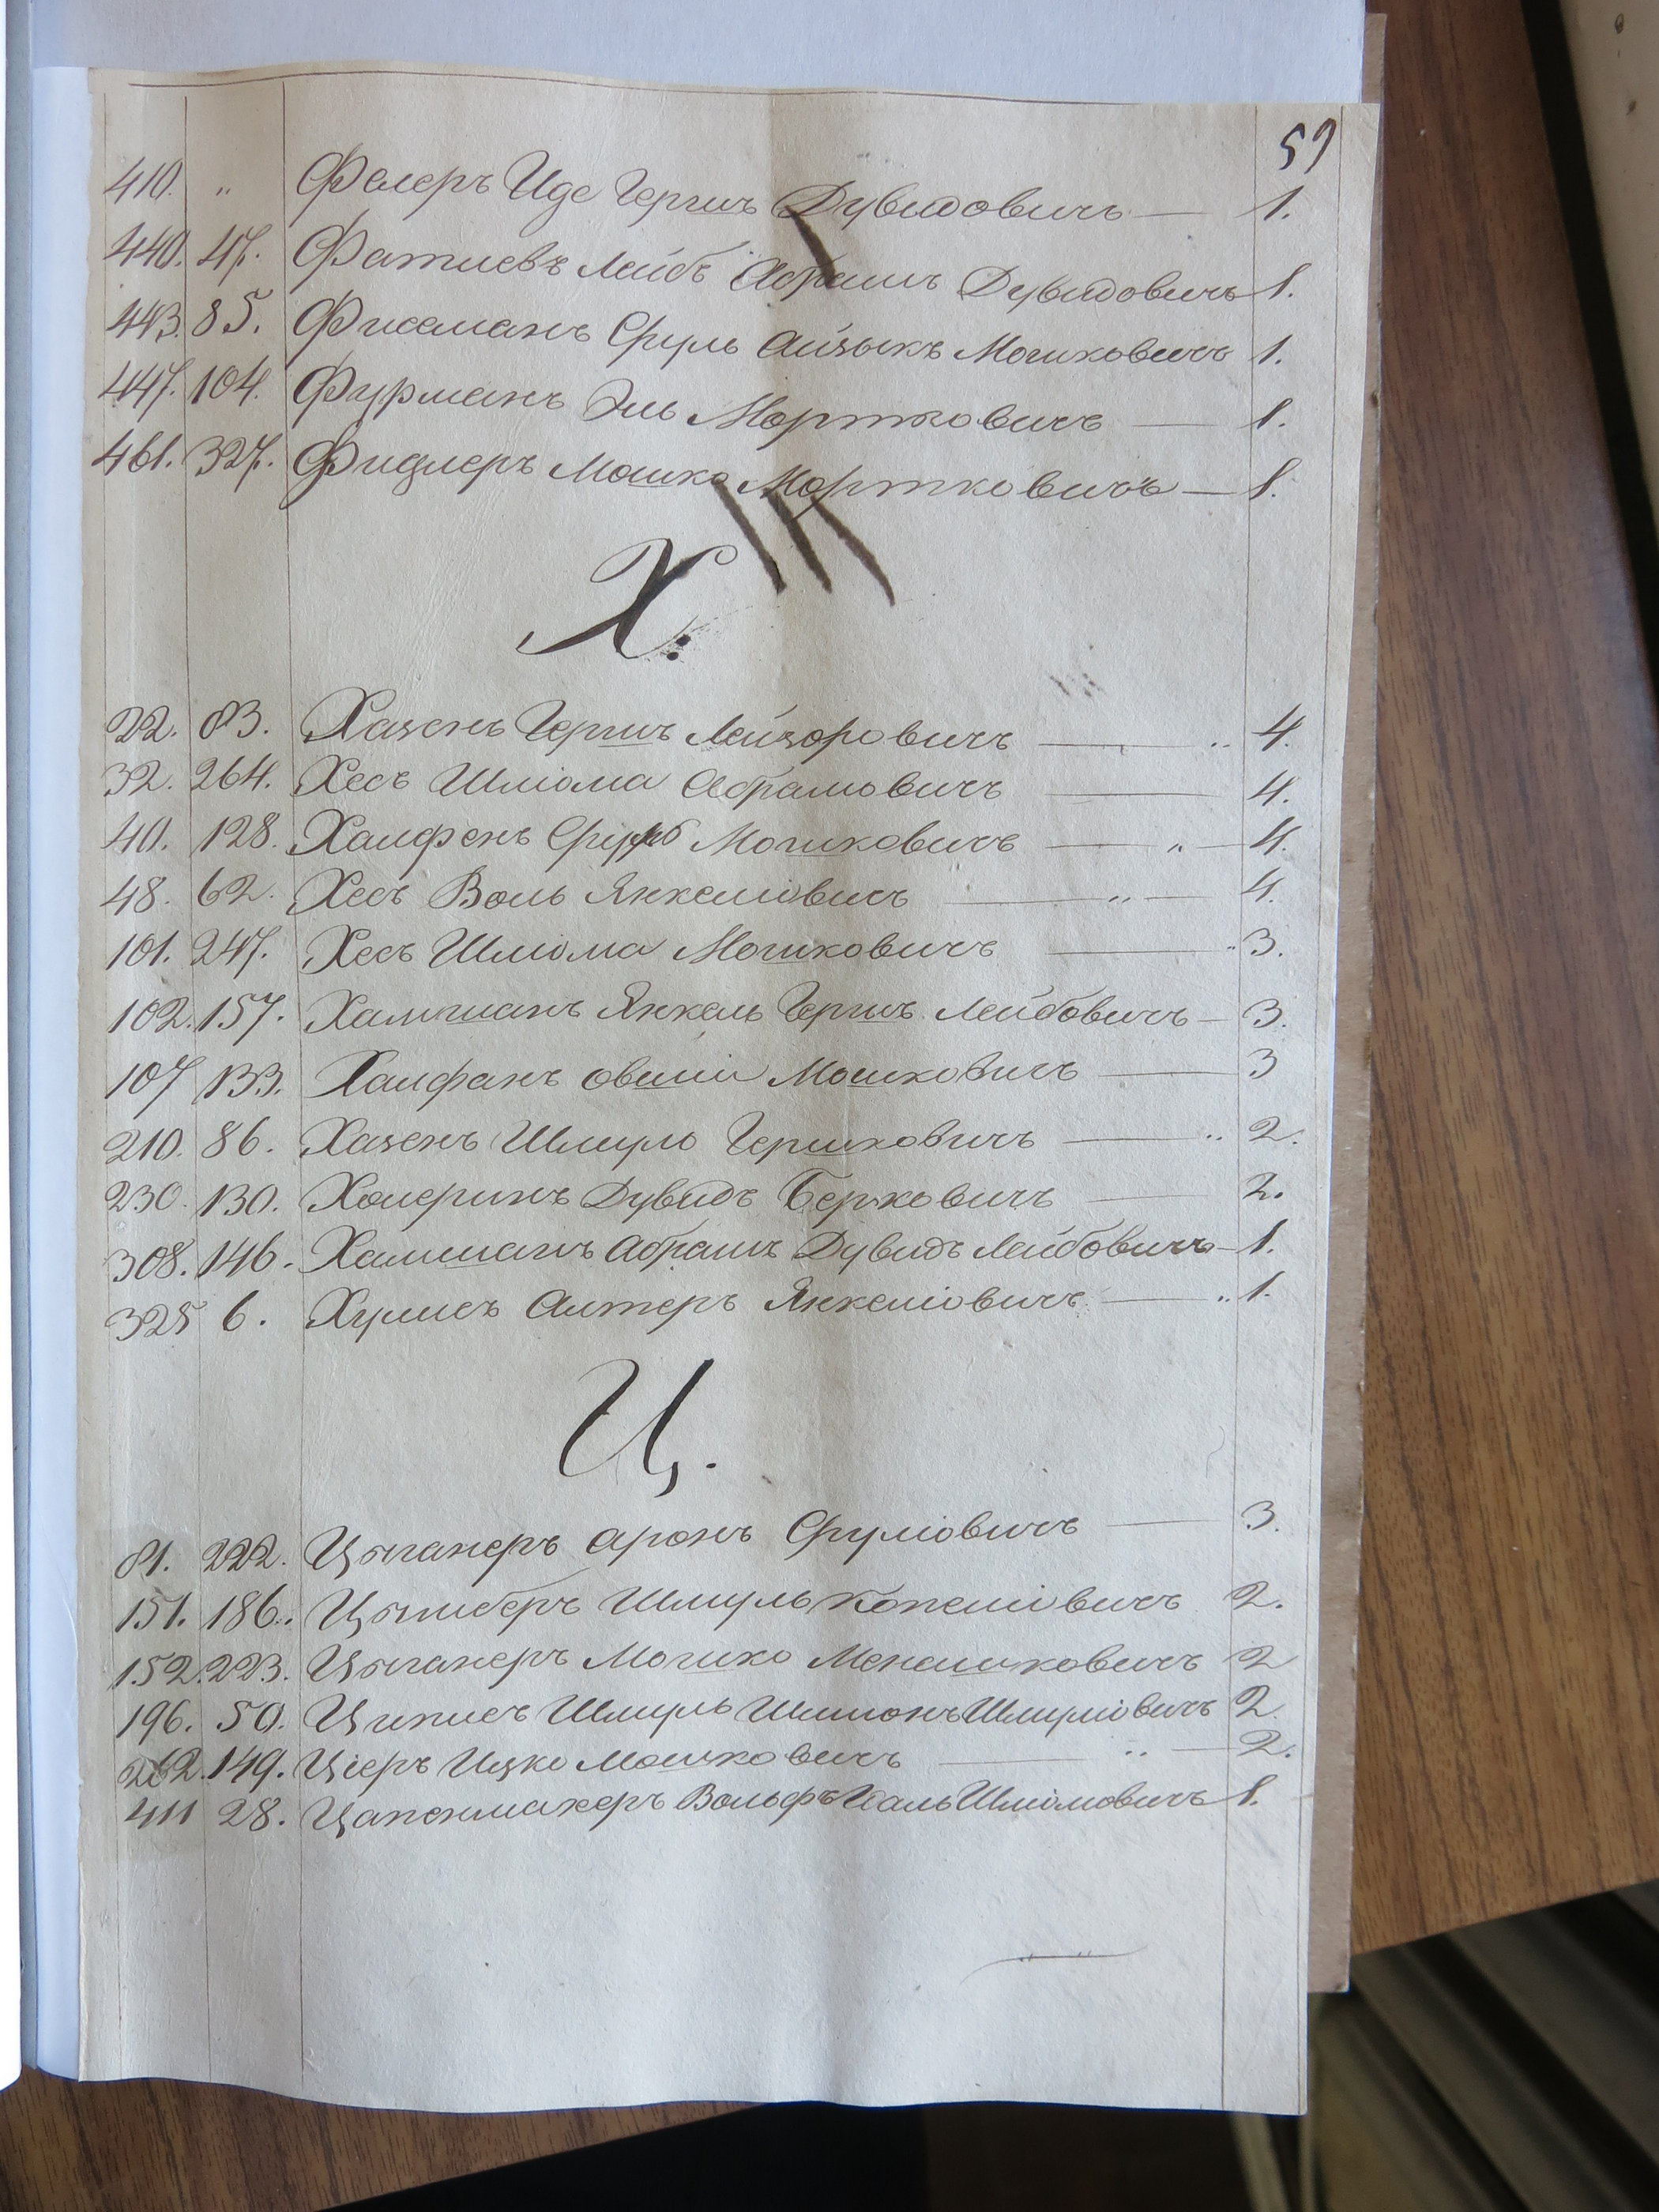 59
410. „ Фелеръ Иде Гершъ Дувидовичъ — 1.
440. 47. Фатиевъ Лейбъ Абрамъ Дувидовичъ 1.
443. 85. Фиселманъ Сруль Айзыкъ Мошковичъ 1.
447. 104. Фурманъ Эль Мортковичъ — 1.
461. 327. Фидлеръ Мошко Мортковичъ — 1.
Х.
22. 83. Хазенъ Гершъ Лейзоровичъ — „ 4.
32. 264. Хесъ Шлiома Абрамовичъ — 4.
40. 128. Халфенъ Сруль Мошковичъ — „ — 4.
48. 62. Хесъ Воль Янкелiовичъ — „ — 4.
101. 247. Хесъ Шлiома Мошковичъ — „ 3.
102. 157. Халмшанъ Янкель Гершъ Лейбовичъ — 3.
107 133. Халфанъ Овшiй Мошковичъ — 3
210. 86. Хазенъ Шмуль Гершковичъ — „ 2.
230. 130. Холеринъ Дувидъ Берковичъ — 2.
308. 146. Хамшанъ Абрамъ Дувидъ Лейбовичъ — 1.
325 6. Хулисъ Алтеръ Янкелiовичъ — „ 1.
Ц.
81. 222. Цыганеръ Аронъ Срулiовичъ — 3.
151. 186. Шмуль Копелiовичъ 2.
152. 223. Цыганеръ Мошко Менашковичъ 2
196. 50. Циписъ Шмуль Шимонъ Шмулiовичъ 2.
262. 149. Цiеръ Ицко Мошковичъ — „ — 2.
411 28. Цапенмахеръ Вольфъ Шлiомовичъ 1.